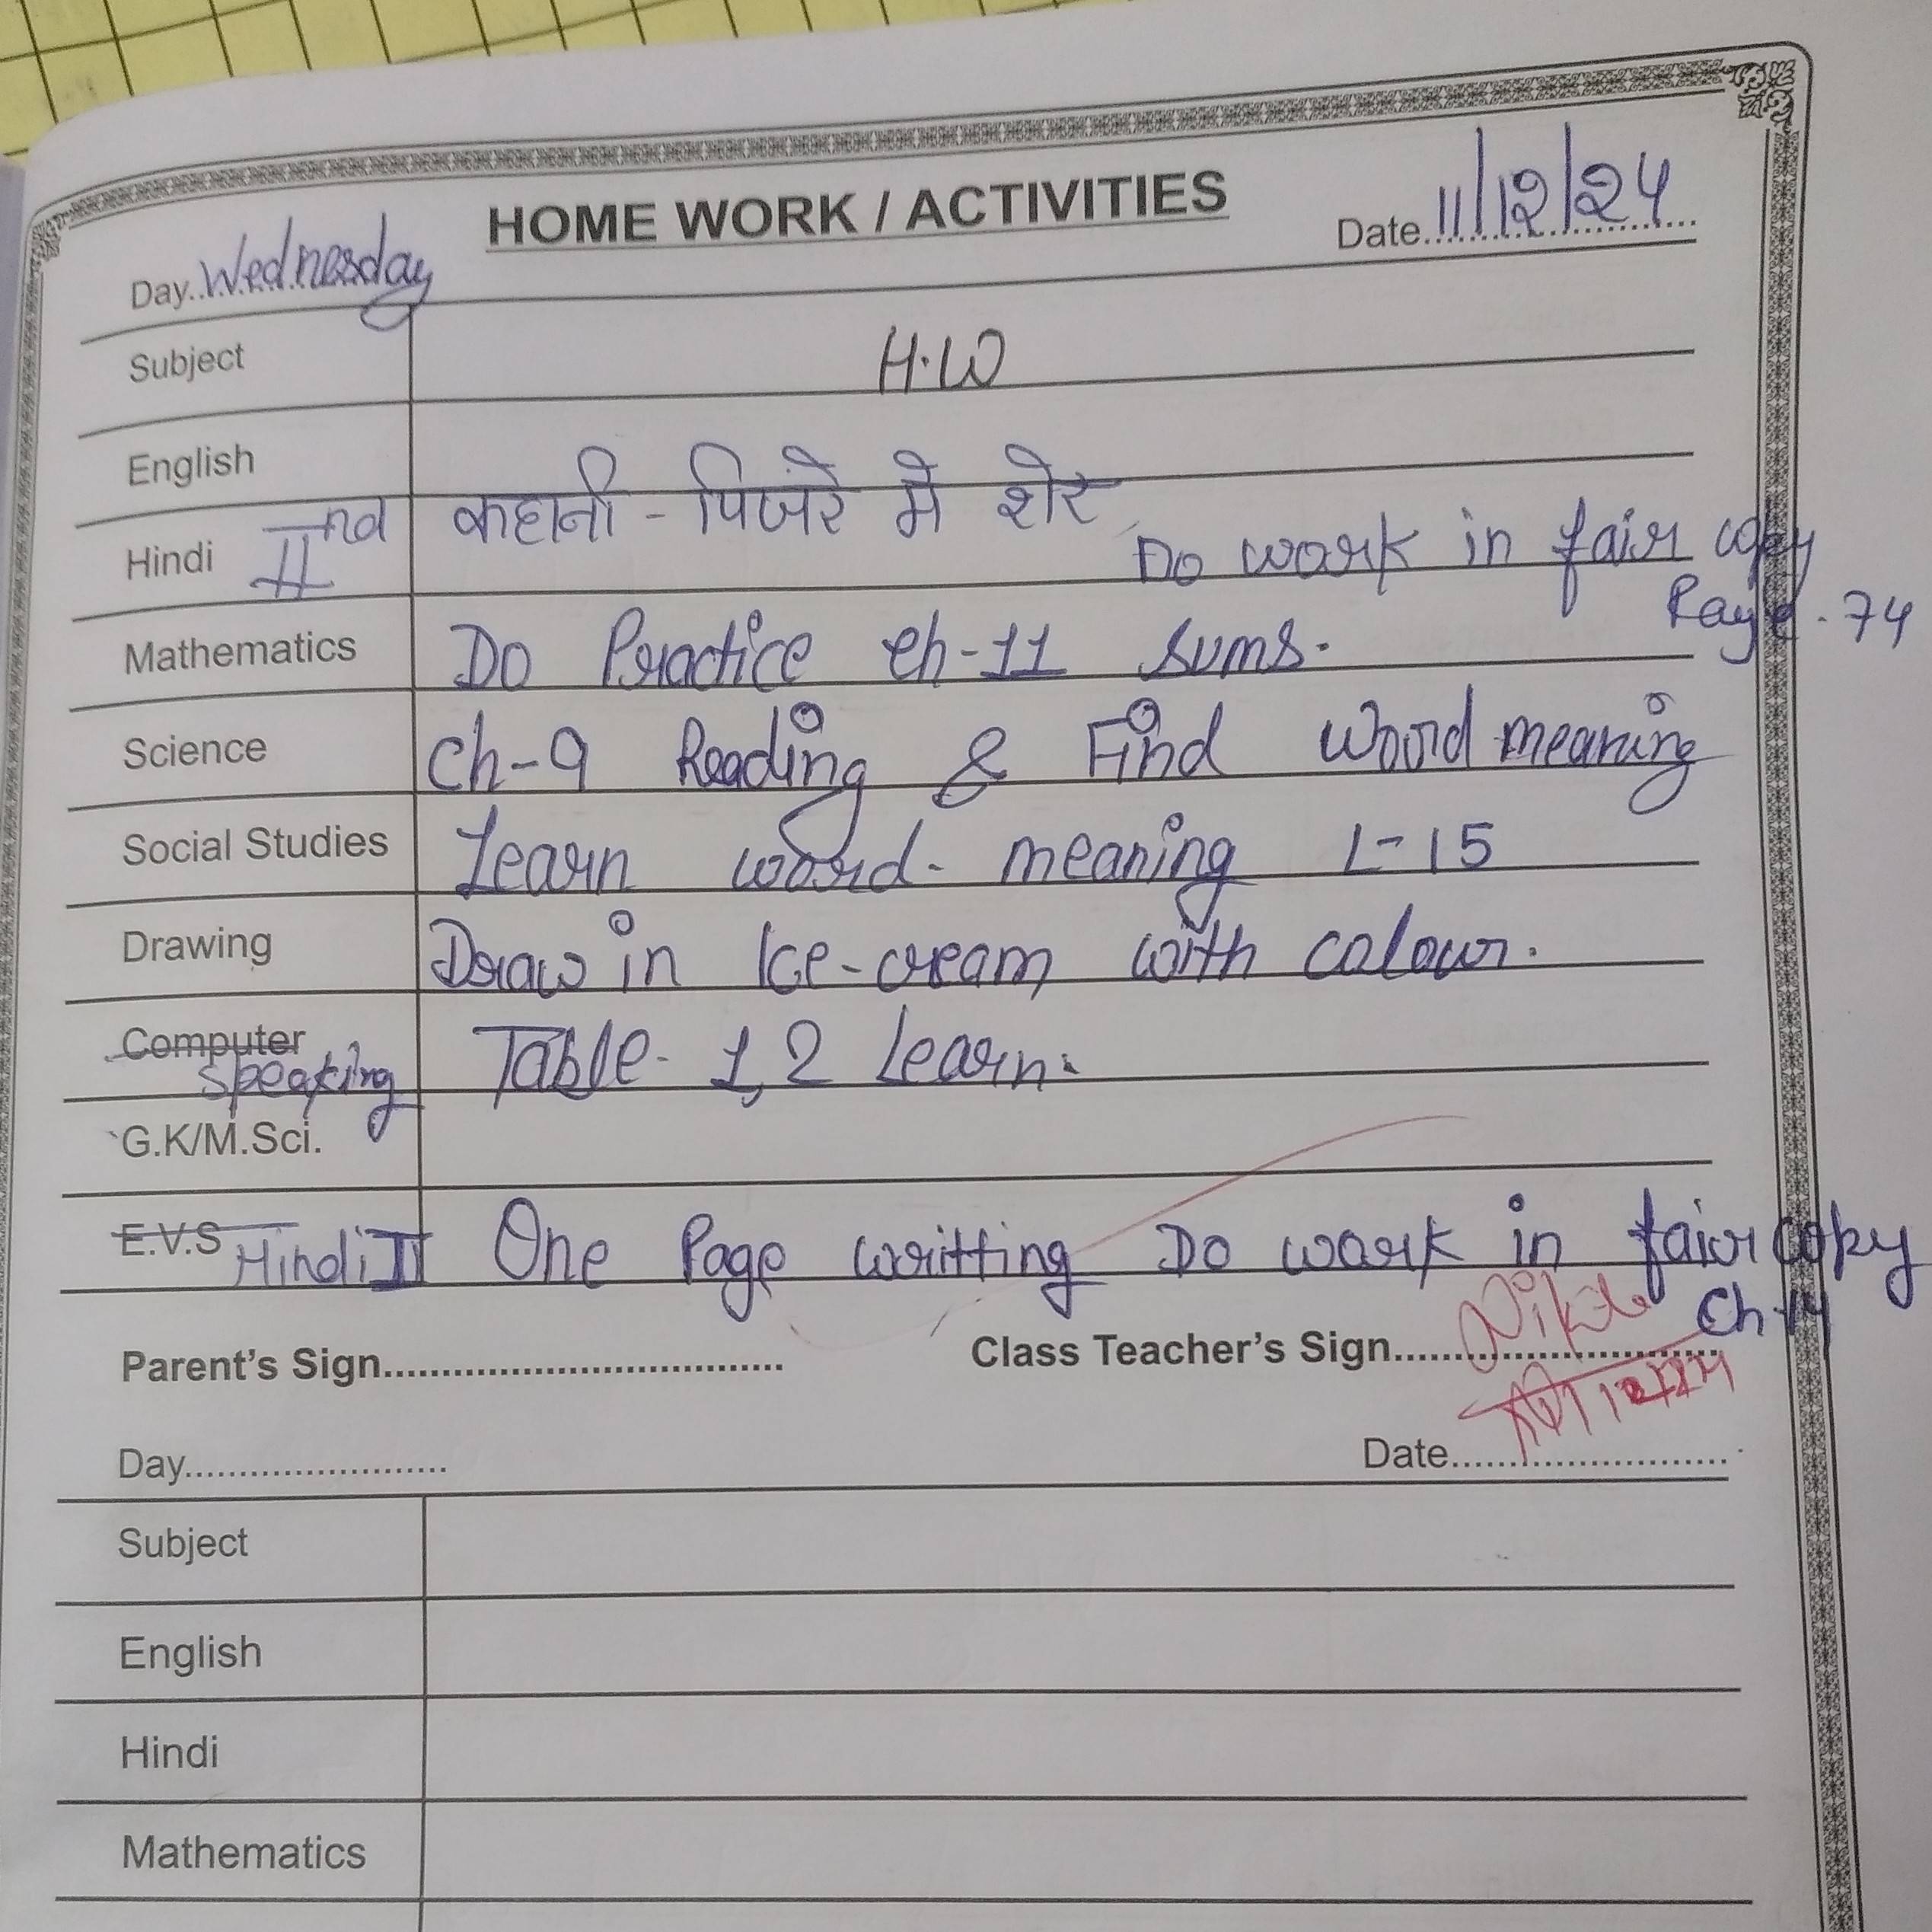 HOME WORK / ACTIVITIES
Day..Wednesday
Date 11/12/24
Subject H.W
English
Hindi IInd कहानी - पिंजरे में शेर Do work in fair copy
Page - 74
Mathematics Do Practice ch-11 sums.
Science Ch-9 Reading & Find Word meaning
Social Studies Learn word - meaning L-15
Drawing Draw in Ice-cream with colour.
Computer speaking Table - 1, 2 Learn.
G.K/M.Sci.
E.V.S Hindi II One Page writting Do work in fair copy
Ch-14
Parent's Sign
Class Teacher's Sign
Day
Date
Subject
English
Hindi
Mathematics